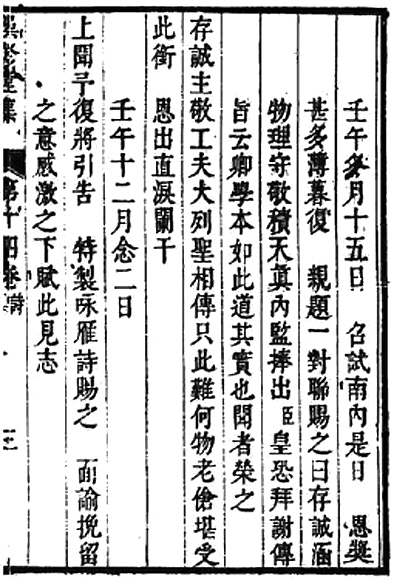 壬午冬月十五日　召試南內是日　恩獎
甚多薄暮復　親題一對聯賜之曰存誠涵
物理守敬積天真內監捧出臣皇恐拜謝傳
旨云卿學本如此道其實也聞者榮之
存誠主敬工夫大列聖相傳只此難何物老傖堪受
此銜　恩出直淚闌干
壬午十二月念二日
上聞予復將引告　特製咏雁詩賜之　面諭挽留
之意感激之下賦此見志
堂集　第十四卷